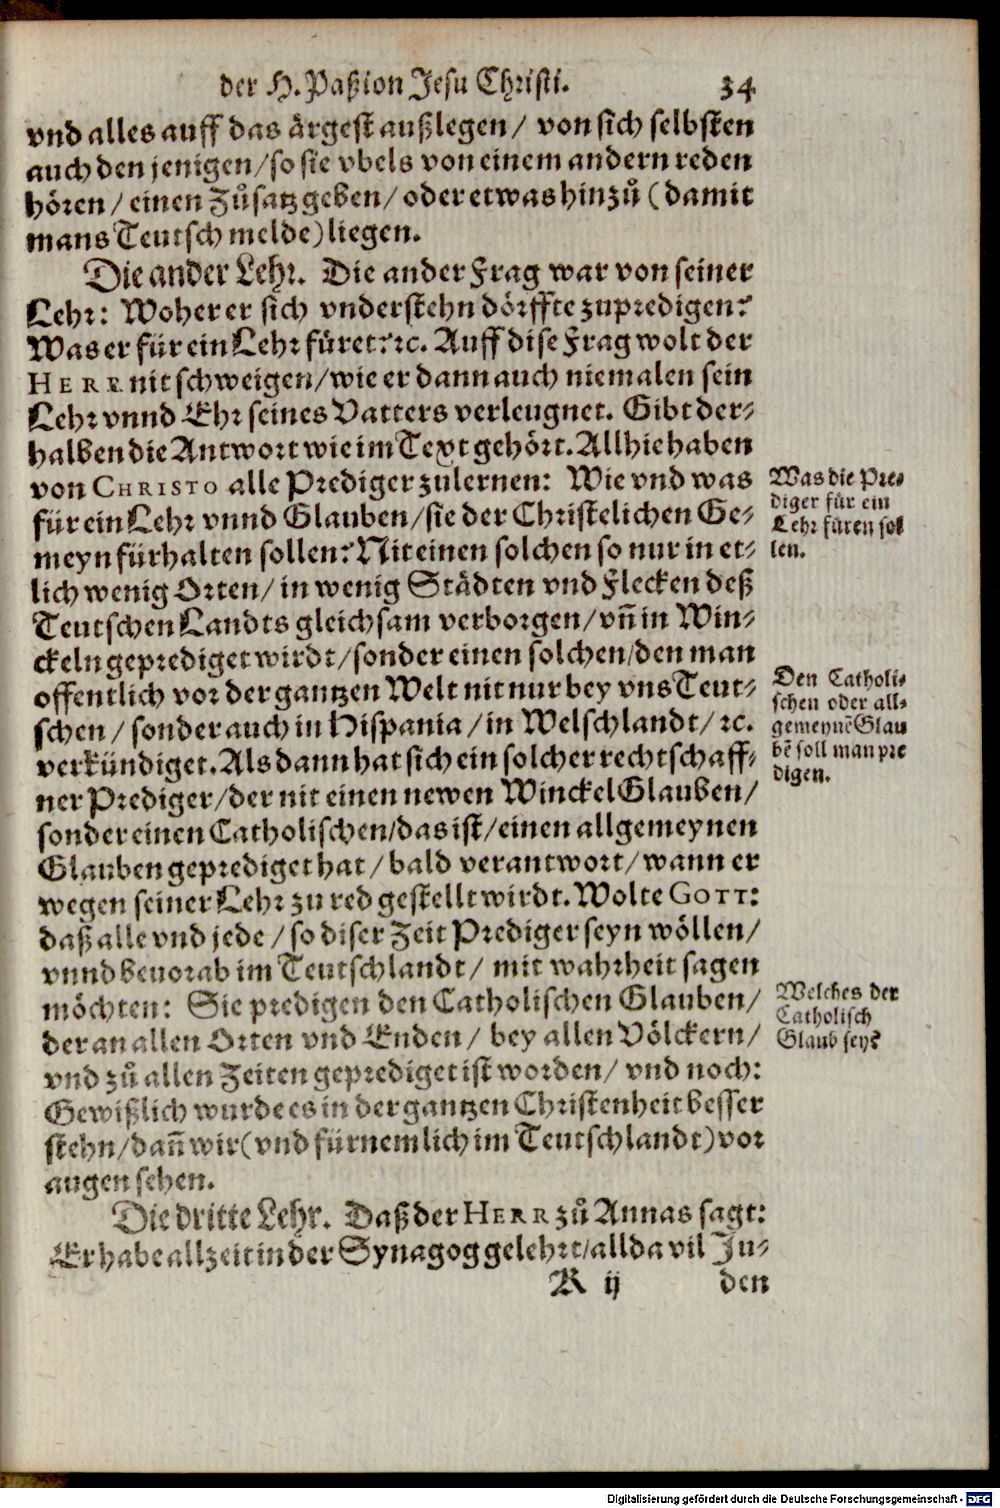 der H. Paßion Jesu Christi. 34
vnd alles auff das ärgest außlegen/ von sich selbsten
auch den jenigen/ so sie vbels von einem andern reden
hören/ einen Zůsatz geben/ oder etwas hinzů (damit
mans Teutsch melde) liegen.
Die ander Lehr. Die ander Frag war von seiner
Lehr: Woher er sich vnderstehn dörffte zupredigen?
Was er für ein Lehr füret? ꝛc. Auff dise Frag wolt der
HERR nit schweigen/ wie er dann auch niemalen sein
Lehr vnnd Ehr seines Vatters verleugnet. Gibt der⸗
halben die Antwort wie im Text gehört. Allhie haben
von CHRISTO alle Prediger zulernen: Wie vnd was
für ein Lehr vnnd Glauben/ sie der Christelichen Ge⸗
meyn fürhalten sollen? Nit einen solchen so nur in et⸗
lich wenig Orten/ in wenig Städten vnd Flecken deß
Teutschen Landts gleichsam verborgen/ vñ in Win⸗
ckeln geprediget wirdt/ sonder einen solchen/ den man
offentlich vor der gantzen Welt nit nur bey vns Teut⸗
schen/ sonder auch in Hispania/ in Welschlandt/ ꝛc.
verkündiget. Als dann hat sich ein solcher rechtschaff⸗
ner Prediger/ der nit einen newen Winckel Glauben/
sonder einen Catholischen/ das ist/ einen allgemeynen
Glauben geprediget hat/ bald verantwort/ wann er
wegen seiner Lehr zu red gestellt wirdt. Wolte GOTT:
daß alle vnd jede/ so diser Zeit Prediger seyn wöllen/
vnnd beuorab im Teutschlandt/ mit wahrheit sagen
möchten: Sie predigen den Catholischen Glauben/
der an allen Orten vnd Enden/ bey allen Völckern/
vnd zů allen Zeiten geprediget ist worden/ vnd noch:
Gewißlich wurde es in der gantzen Christenheit besser
stehn/ dañ wir (vnd fürnemlich im Teutschlandt) vor
augen sehen.
Die dritte Lehr. Daß der HERR zů Annas sagt:
Er habe allzeit in der Synagog gelehrt/ allda vil Ju⸗
K ij den
Was die Pre⸗
diger für ein
Lehr füren sol
len.
Den Catholi⸗
schen oder all⸗
gemeynē Glau
bē soll man pre
digen.
Welches der
Catholisch
Glaub sey?
Digitalisierung gefördert durch die Deutsche Forschungsgemeinschaft - DFG